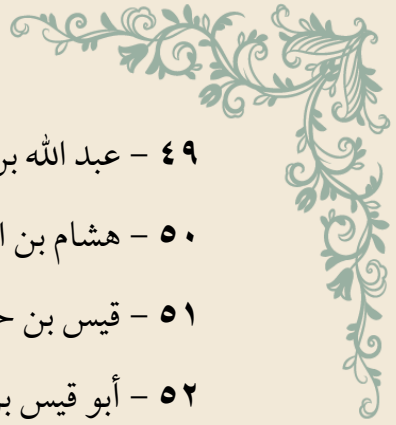 ٤٩ – عبد الله بن
٥٠ – هشام بن ا
٥١ – قيس بن ح
٥٢ – أبو قيس بن